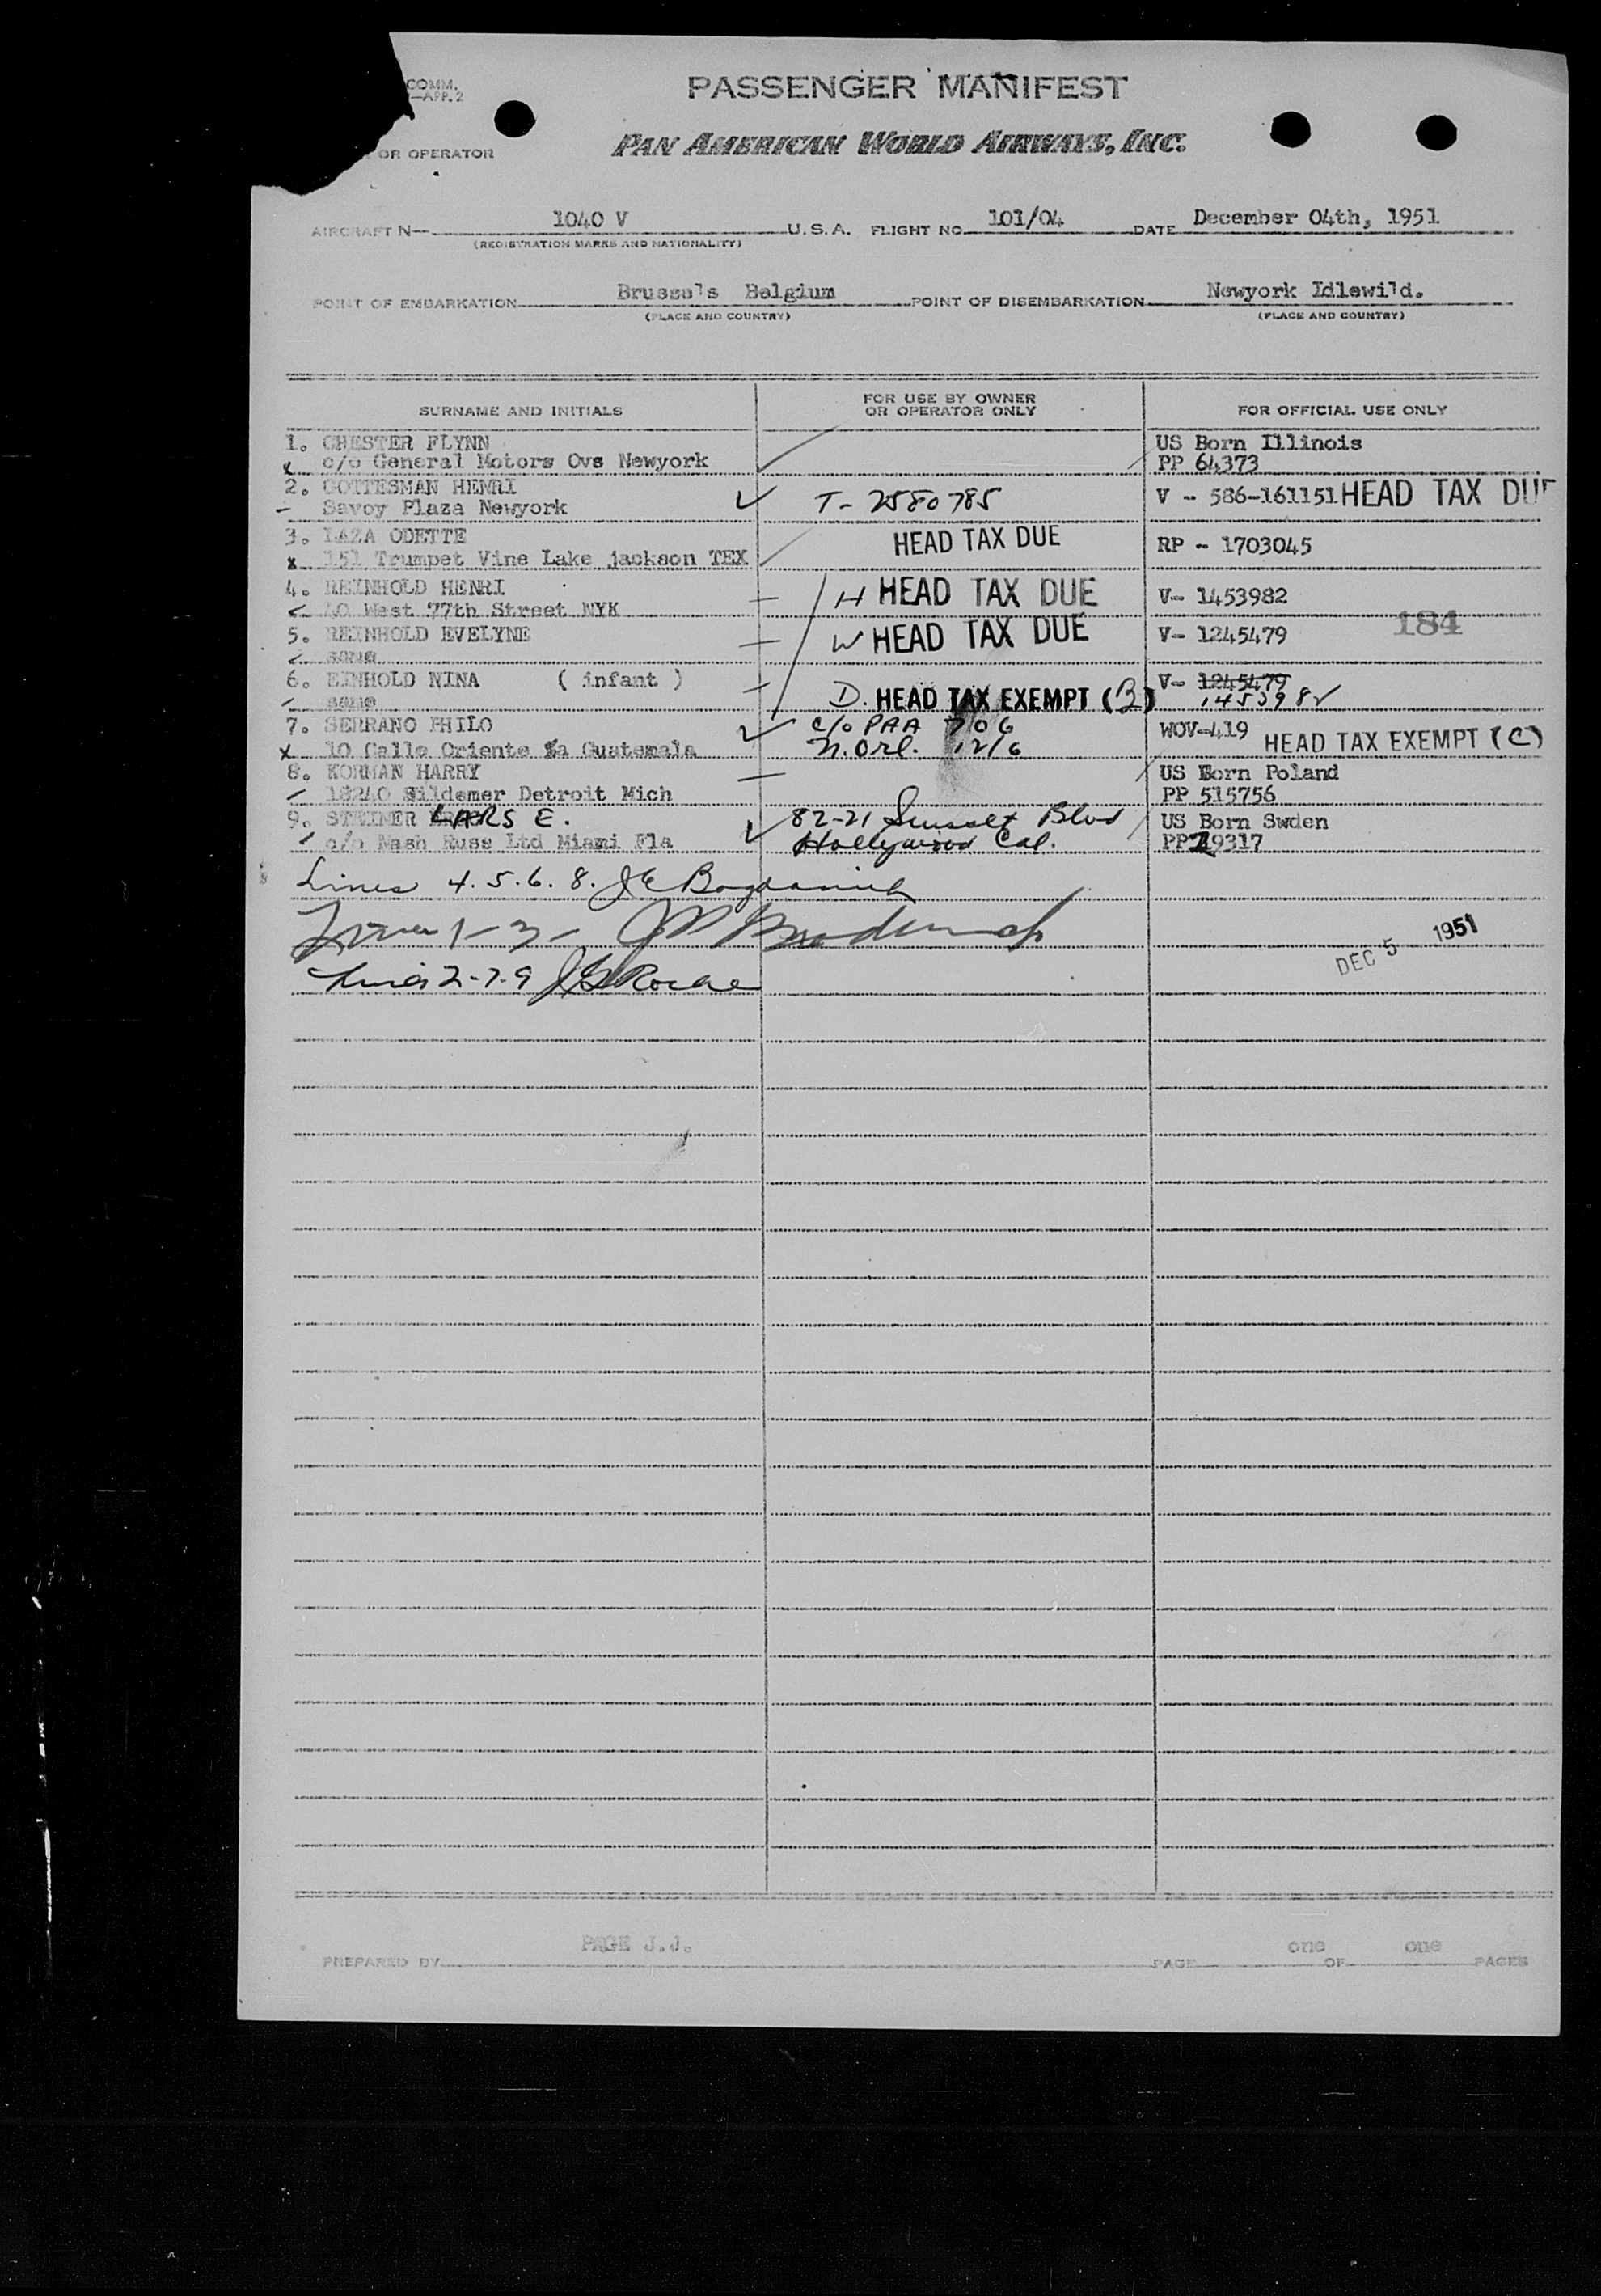 COMM.
—APP. 2
PASSENGER MANIFEST
OR OPERATOR
PAN AMERICAN WORLD AIRWAYS, INC.
AIRCRAFT N— 1040 V U. S. A. FLIGHT NO. 101/04 DATE December 04th, 1951
(REGISTRATION MARKS AND NATIONALITY)
POINT OF EMBARKATION Brussels Belgium POINT OF DISEMBARKATION Newyork Idlewild.
(PLACE AND COUNTRY) (PLACE AND COUNTRY)
SURNAME AND INITIALS FOR USE BY OWNER OR OPERATOR ONLY FOR OFFICIAL USE ONLY
1. CHESTER FLYNN US Born Illinois
x c/o General Motors Ovs Newyork PP 64373
2. GOTTESMAN HENRI T- 2580785 V - 586-161151 HEAD TAX DUE
Savoy Plaza Newyork
3. LAZA ODETTE HEAD TAX DUE RP - 1703045
x 151 Trumpet Vine Lake jackson TEX
4. REINHOLD HENRI H HEAD TAX DUE V- 1453982
40 West 77th Street NYK 184
5. REINHOLD EVELYNE W HEAD TAX DUE V- 1245479
same
6. EINHOLD NINA ( infant ) D. HEAD TAX EXEMPT (B) V- 1245479
same 1453982
7. SERRANO PHILO c/o PAA 706 WOV-419 HEAD TAX EXEMPT (C)
x 10 Calle Oriente Guatemala N. Orl. 12/6
8. KORMAN HARRY US Born Poland
18240 Wildemer Detroit Mich PP 515756
9. STEINER LARS E. 82-21 Sunset Blvd US Born Swden
c/o Nash Russ Ltd Miami Fla Hollywood Cal. PP 19317
Lines 4. 5. 6. 8. JE Bogdanich
Lines 1-3-
DEC 5 1951
Lines 2-7-9
PREPARED BY PAGE J.J. PAGE one OF one PAGES